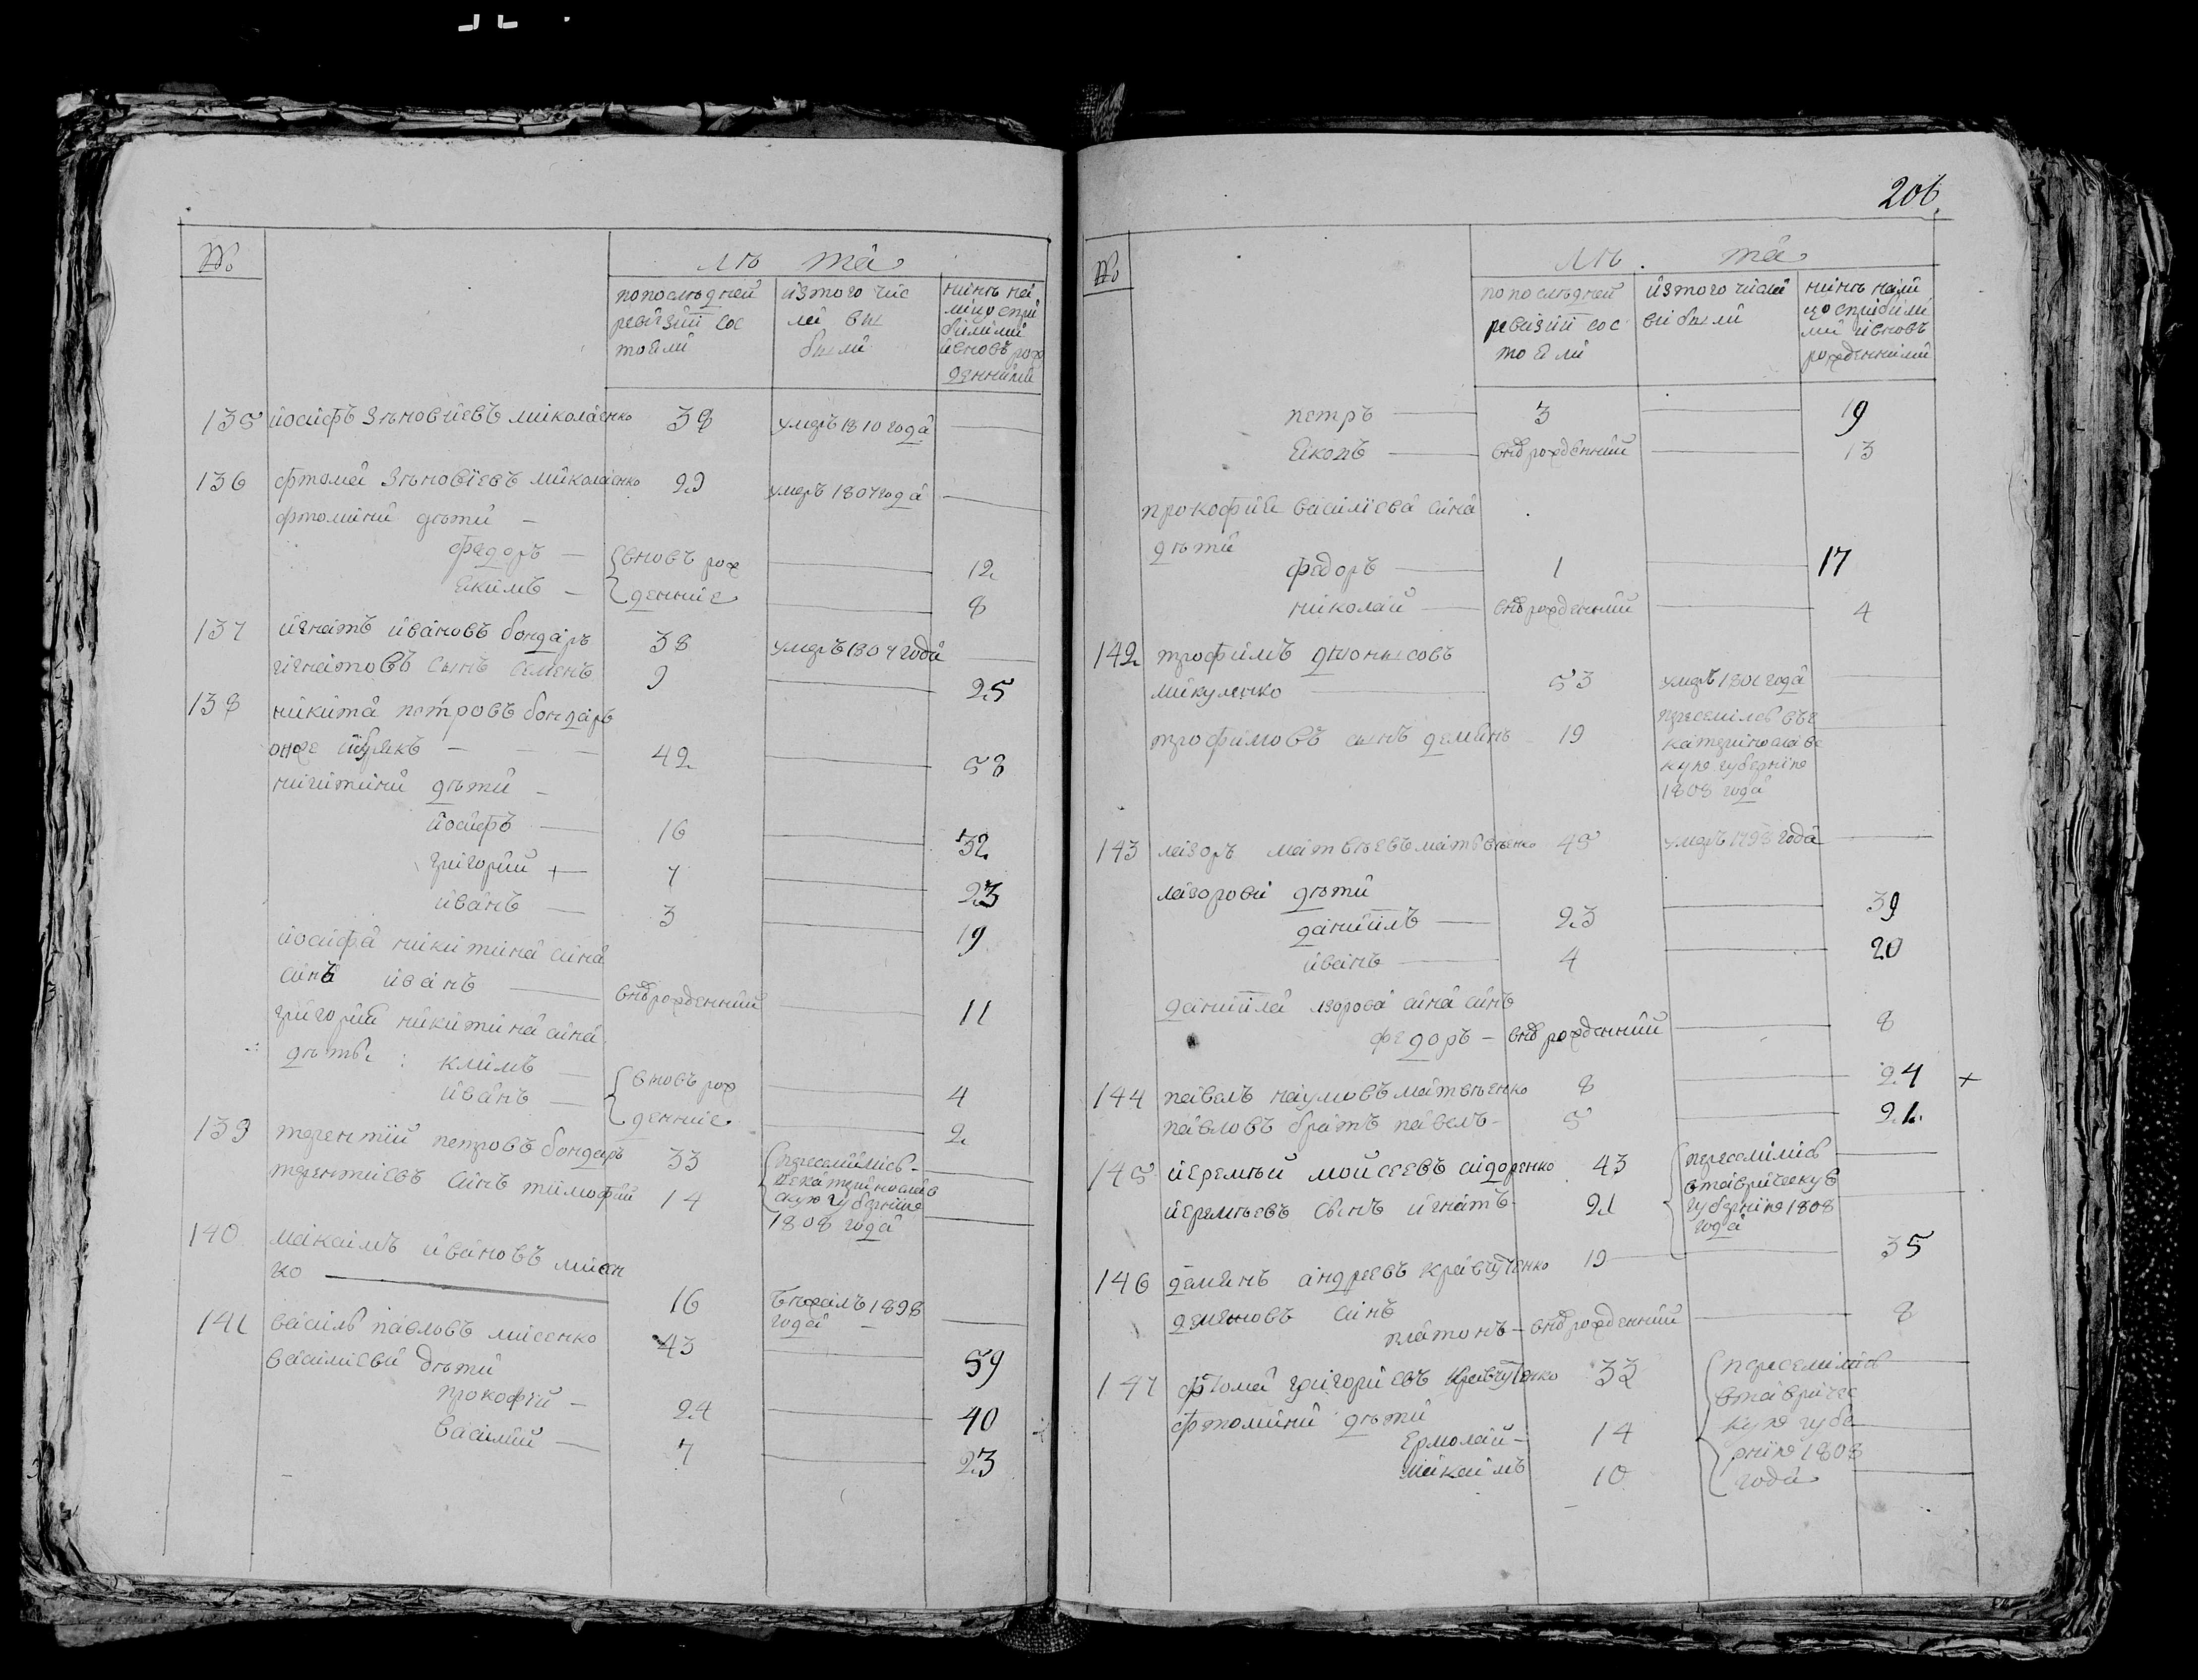 206
№
лѣ та
по последней
ревизіи сос
тояли
изтого чис
ла вы
были
нинѣ на
лицо спри
билими
ивновъ рож
денними
135 иосифъ Зѣновиевъ миколаенко 38 умеръ 1810 года
136 фтома Зѣновіевъ миколаенко 29 умеръ 1807 года
фтомини дѣти
федоръ вновъ рож 12
якимъ денние 8
137 игнатъ ивановъ бондаръ 38 умеръ 1807 года
игнатовъ сынъ семенъ 9 25
138 никита петровъ бондаръ
онже 42 58
никитини дѣти
иосифъ 16 32
григорий + 7 23
иванъ 3 19
иосифа никитина сина
синъ иванъ вновърожденний 11
григория никитина сина
дѣти: климъ вновъ рож 4
иванъ денние 2
139 терентий петровъ бондаръ 33 переселилисъ
терентиевъ синъ тимофий 14 векатеринослав
скую губернию
1808 года
140 максимъ ивановъ лисен
ко 16 бѣжалъ 1898
года
141 василь павловъ лисенко 43 59
василиеви дѣти
прокофий 24 40
василий 7 23
№
лѣ та
по последней
ревизіи сос
тояли
изтого числа
вибыли
нинѣ нали
цо сприбили
ми ивновъ
рожденними
петръ 3 19
яковъ вновърожденний 13
прокофия василиева сина
дѣти
федоръ 1 17
николай вновърожденний 4
142 трофимъ дионысовъ
микуленко 53 умеръ 1801 года
трофимовъ сынъ демянъ 19 преселилсъ въе
катеринославс
кую губернию
1808 года
143 лазоръ матвѣевъ матвѣенко 45 умеръ 1798 года
лазорови дѣти
даниилъ 23 39
иванъ 4 20
даниила лзорова сина синъ
федоръ вновърожденний 8
144 павелъ наумовъ матвѣенко 8 24 +
павловъ братъ павелъ 5 21
145 иеремѣй мойсеевъ сидоренко 43 переселилисъ
иеремѣевъ сынъ игнатъ 21 втавричскую
губернию 1808
года
146 демянъ андреевъ кравченко 19 35
демяновъ синъ
платонъ вновърожденний 8
147 фтома григориевъ кравченко 33 переселилисъ
фтомини дѣти втавричес
ермолай 14 кую губе
максимъ 10 рнию 1808
года